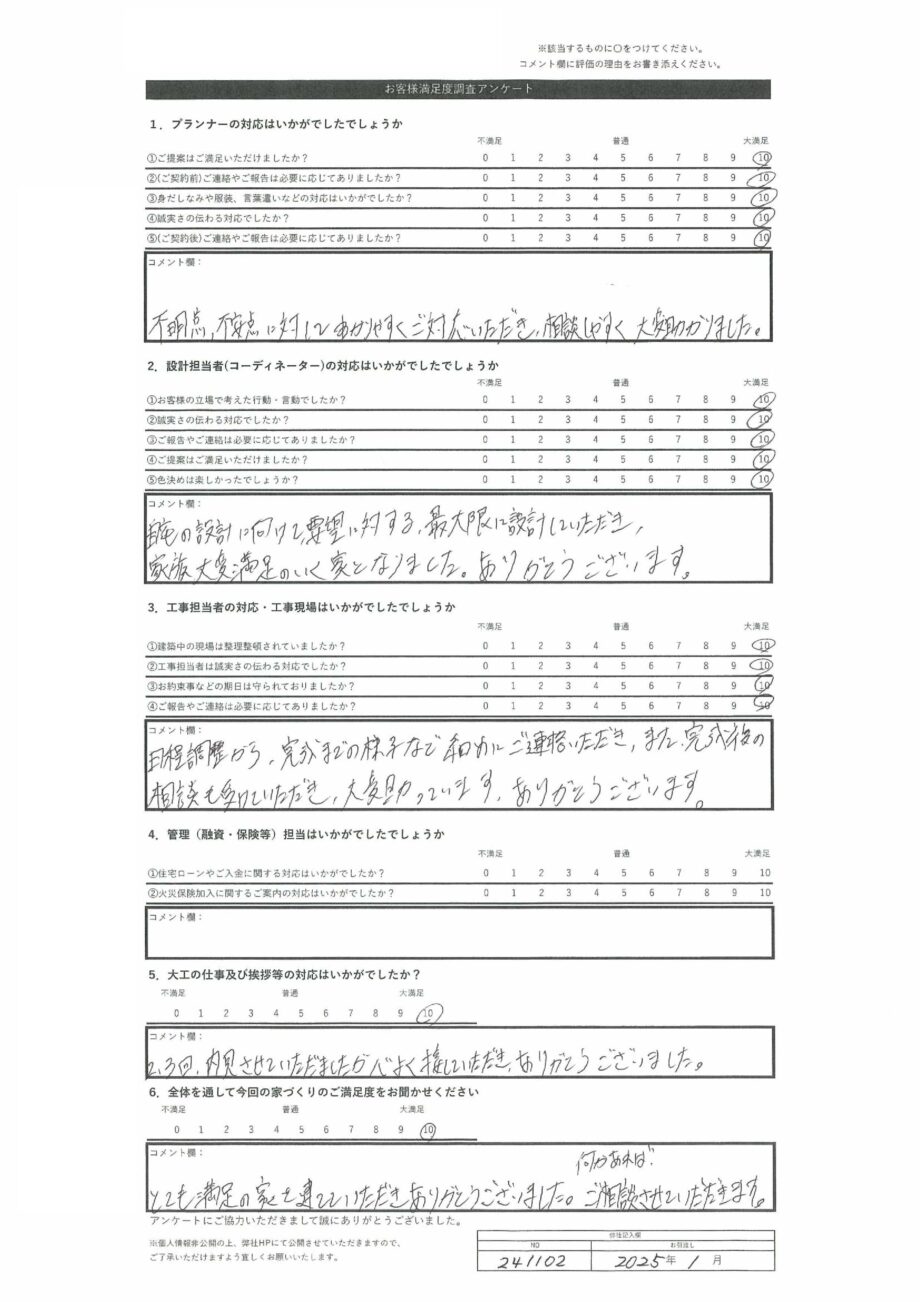 ※該当するものに〇をつけてください。
コメント欄に評価の理由をお書き添えください。
お客様満足度調査アンケート
1．プランナーの対応はいかがでしたでしょうか
不満足 普通 大満足
①ご提案はご満足いただけましたか？ 0 1 2 3 4 5 6 7 8 9 10
②(ご契約前)ご連絡やご報告は必要に応じてありましたか？ 0 1 2 3 4 5 6 7 8 9 10
③身だしなみや服装、言葉遣いなどの対応はいかがでしたか？ 0 1 2 3 4 5 6 7 8 9 10
④誠実さの伝わる対応でしたか？ 0 1 2 3 4 5 6 7 8 9 10
⑤(ご契約後)ご連絡やご報告は必要に応じてありましたか？ 0 1 2 3 4 5 6 7 8 9 10
コメント欄：
不明点，不安点に対してわかりやすくご対応いただき，相談しやすく大変助かりました。
2．設計担当者(コーディネーター)の対応はいかがでしたでしょうか
不満足 普通 大満足
①お客様の立場で考えた行動・言動でしたか？ 0 1 2 3 4 5 6 7 8 9 10
②誠実さの伝わる対応でしたか？ 0 1 2 3 4 5 6 7 8 9 10
③ご報告やご連絡は必要に応じてありましたか？ 0 1 2 3 4 5 6 7 8 9 10
④ご提案はご満足いただけましたか？ 0 1 2 3 4 5 6 7 8 9 10
⑤色決めは楽しかったでしょうか？ 0 1 2 3 4 5 6 7 8 9 10
コメント欄：
自宅の設計に向けて，要望に対する，最大限に設計していただき，
家族大変満足のいく家となりました。ありがとうございます。
3．工事担当者の対応・工事現場はいかがでしたでしょうか
不満足 普通 大満足
①建築中の現場は整理整頓されていましたか？ 0 1 2 3 4 5 6 7 8 9 10
②工事担当者は誠実さの伝わる対応でしたか？ 0 1 2 3 4 5 6 7 8 9 10
③お約束事などの期日は守られておりましたか？ 0 1 2 3 4 5 6 7 8 9 10
④ご報告やご連絡は必要に応じてありましたか？ 0 1 2 3 4 5 6 7 8 9 10
コメント欄：
日程調整から，完成までの様子など細めにご連絡いただき，また，完成後の
相談も受けていただき，大変助かっています，ありがとうございます。
4．管理（融資・保険等）担当はいかがでしたでしょうか
不満足 普通 大満足
①住宅ローンやご入金に関する対応はいかがでしたか？ 0 1 2 3 4 5 6 7 8 9 10
②火災保険加入に関するご案内の対応はいかがでしたか？ 0 1 2 3 4 5 6 7 8 9 10
コメント欄：
5．大工の仕事及び挨拶等の対応はいかがでしたか？
不満足 普通 大満足
0 1 2 3 4 5 6 7 8 9 10
コメント欄：
2，3回，内見させていただましたが心よく接していただき，ありがとうございました。
6．全体を通して今回の家づくりのご満足度をお聞かせください
不満足 普通 大満足
0 1 2 3 4 5 6 7 8 9 10
コメント欄：
何かあれば，
とても満足の家を建てていただきありがとうございました。ご相談させていただきます。
アンケートにご協力いただきまして誠にありがとうございました。
※個人情報非公開の上、弊社HPにて公開させていただきますので、
ご了承いただけますよう宜しくお願いいたします。
弊社記入欄
NO お引渡し
241102 2025年 1 月